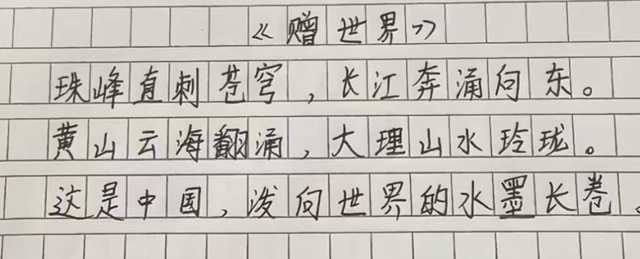 《赠世界》
珠峰直刺苍穹，长江奔涌向东。
黄山云海翻涌，大理山水玲珑。
这是中国，泼向世界的水墨长卷。